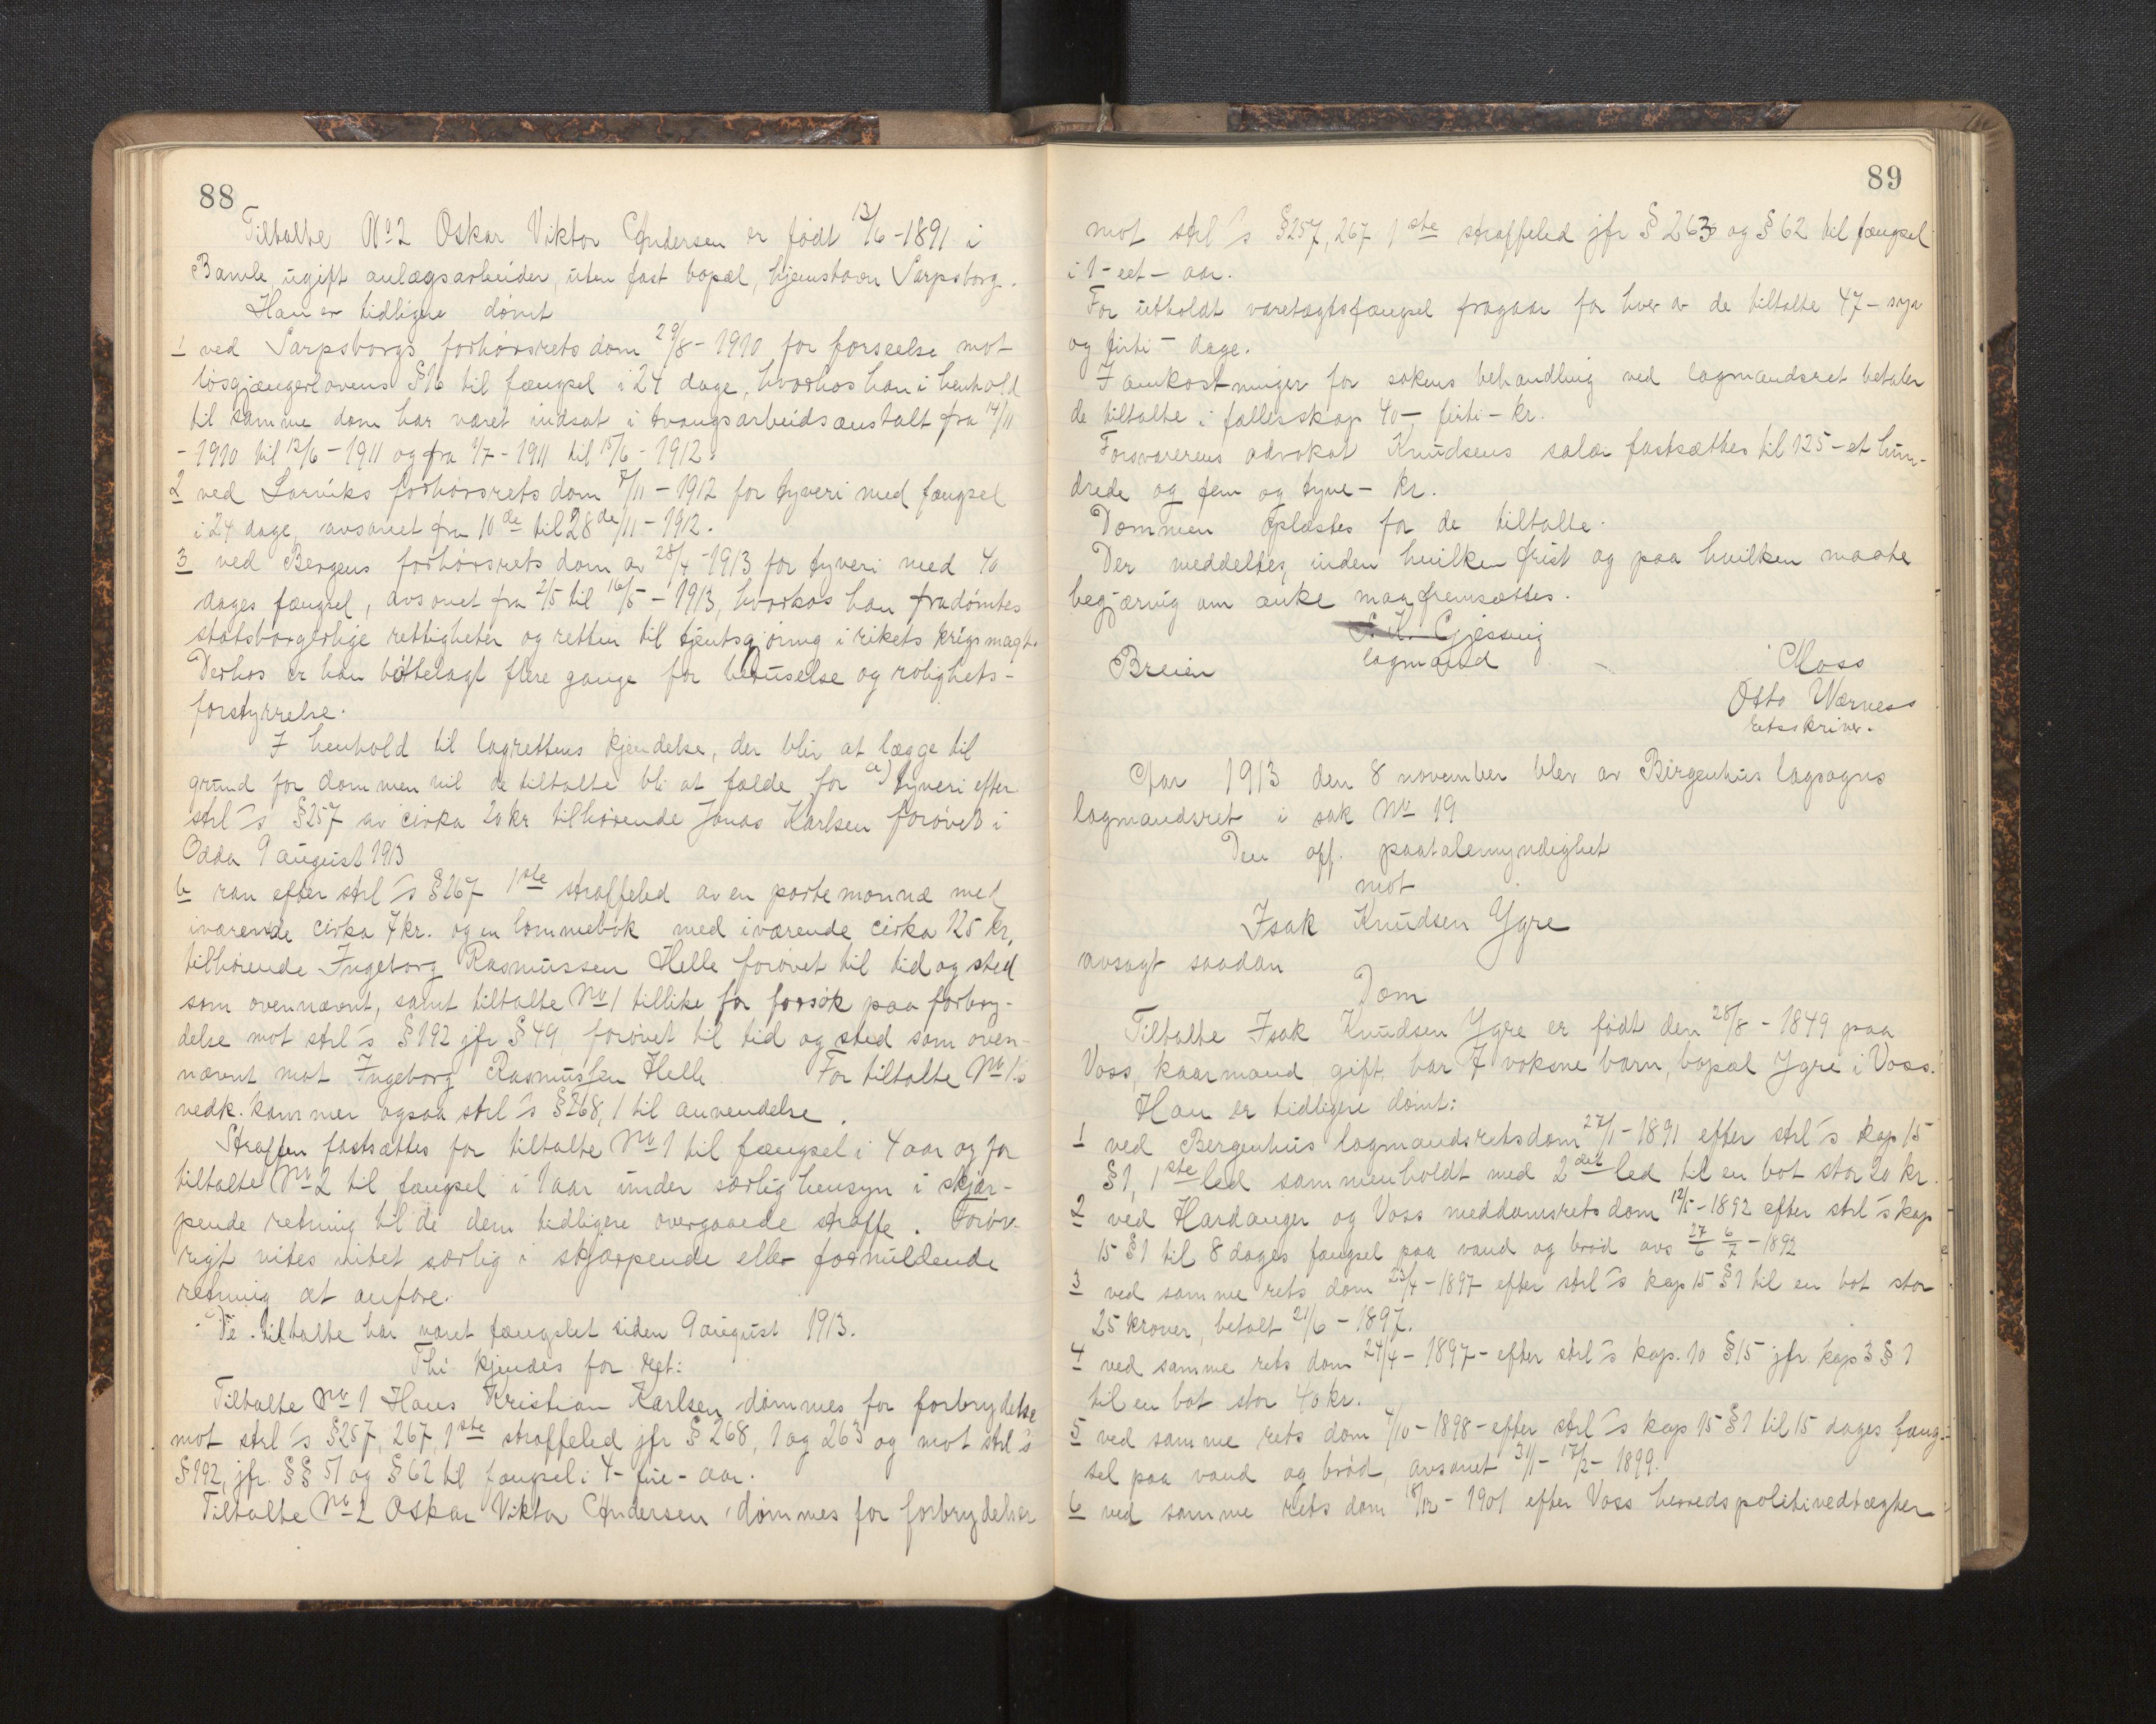 88
Tiltalte No 2 Oskar Viktor Andersen er født 13/6-1891 i
Bamle, ugift anlægsarbeider, uten fast bopæl, hjemstavn Sarpsborg.
Han er tidligere dømt
1 ved Sarpsborgs forhørsrets dom 29/8-1910 for forseelse mot
løsgjængerlovens §16 til fængsel i 24 dage, hvorhos han i henhold
til samme dom har været indsat i tvangsarbeidsanstalt fra 14/11
-1910 til 12/6-1911 og fra 1/7-1911 til 15/6-1912.
2 ved Larviks forhørsrets dom 5/11-1912 for tyveri med fængsel
i 24 dage, avsonet fra 10de til 28de/11-1912.
3 ved Bergens forhørsrets dom av 28/4-1913 for tyveri med 40
dages fængsel, avsonet fra 2/5 til 16/5-1913, hvorhos han fradømtes
statsborgerlige rettigheter og retten til tjentsgjøring i rikets krigsmagt.
Derhos er han bøtelagt flere gange for beruselse og rolighets-
forstyrrelse.
I henhold til lagrettens kjendelse, der blir at lægge til
grund for dommen vil de tiltalte bli at fælde for a) tyveri efter
strl's §257 av cirka 20 kr tilhørende Jonas Karlsen forøvet i
Odda 9 august 1913
b ran efter strl's §267 1ste straffeled av en portemonnæ med
iværende cirka 7 kr. og en lommebok med iværende cirka 125 kr,
tilhørende Ingeborg Rasmussen Helle forøvet til tid og sted
som ovennævnt, samt tiltalte No 1 tillike for forsøk paa forbry-
delse mot strl's §192 jfr §49, forøvet til tid og sted som oven-
nævnt mot Ingeborg Rasmussen Helle. For tiltalte No 1's
vedk. kommer ogsaa strl's §268, 1 til anvendelse.
Straffen fastsættes for tiltalte No 1 til fængsel i 4 aar og for
tiltalte No 2 til fængsel i 1 aar under særlig hensyn i skjær-
pende retning til de dem tidligere overgaaede straffe. Forøv-
rigt vites intet særlig i skjærpende eller formildende
retning at anføre.
De tiltalte har været fængslet siden 9 august 1913.
Thi kjendes for ret:
Tiltalte No 1 Hans Kristian Karlsen dømmes for forbrydelse
mot strl's §257, 267, 1ste straffeled jfr §268, 1 og 263 og mot strl's
§192, jfr. §§ 51 og §62 til fængsel i 4-fire-aar.
Tiltalte No 2 Oskar Viktor Andersen dømmes for forbrydelser
89
mot strl's §257, 267 1ste straffeled jfr §263 og §62 til fængsel
i 1-eet-aar.
For utholdt varetægtsfængsel fragaar for hver av de tiltalte 47-syv
og firti-dage.
I omkostninger for sakens behandling ved lagmandsret betaler
de tiltalte i fællesskap 40-firti-kr.
Forsvarerens advokat Knudsens salær fastsættes til 125-et hun-
drede og fem og tyve-kr.
Dommen oplæstes for de tiltalte.
Der meddeltes, inden hvilken frist og paa hvilken maate
begjæring om anke maa fremsættes.
Gjessing
Breien lagmand Moss
Otto Wærness
retsskriver.
Aar 1913 den 8 november blev av Bergenhus lagsogns
lagmandsret i sak No 19
Den off. paatalemyndighet
mot
Isak Knudsen Ygre
avsagt saadan
Dom
Tiltalte Isak Knudsen Ygre er født den 28/8-1849 paa
Voss, kaarmand, gift, har 7 voksne barn, bopæl Ygre i Voss.
Han er tidligere dømt:
1 ved Bergenhus lagmandsretsdom 27/1-1891 efter strl's kap 15
§1, 1ste led sammenholdt med 2det led til en bot stor 20 kr.
2 ved Hardanger og Voss meddomsrets dom 12/5-1892 efter strl's kap
15 §1 til 8 dages fængsel paa vand og brød avs 27/6 6/7-1892
3 ved samme rets dom 23/4-1897 efter strl's kap 15 §1 til en bot stor
25 kroner, betalt 21/6-1897.
4 ved samme rets dom 24/4-1897-efter strl's kap. 10 §15 jfr kap 3 §1
til en bot stor 40 kr.
5 ved samme rets dom 4/10-1898-efter strl's kap 15 §1 til 15 dages fæng-
sel paa vand og brød, avsonet 31/1-17/2-1899.
6 ved samme rets dom 18/12-1901 efter Voss herredspolitivedtægter